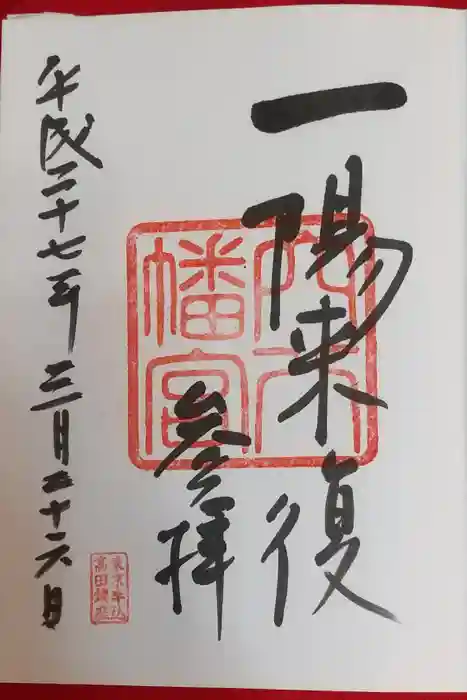 一陽来復
参拝
穴八
幡宮
平成二十七年三月二十六日
東京牛込
高田鎮座